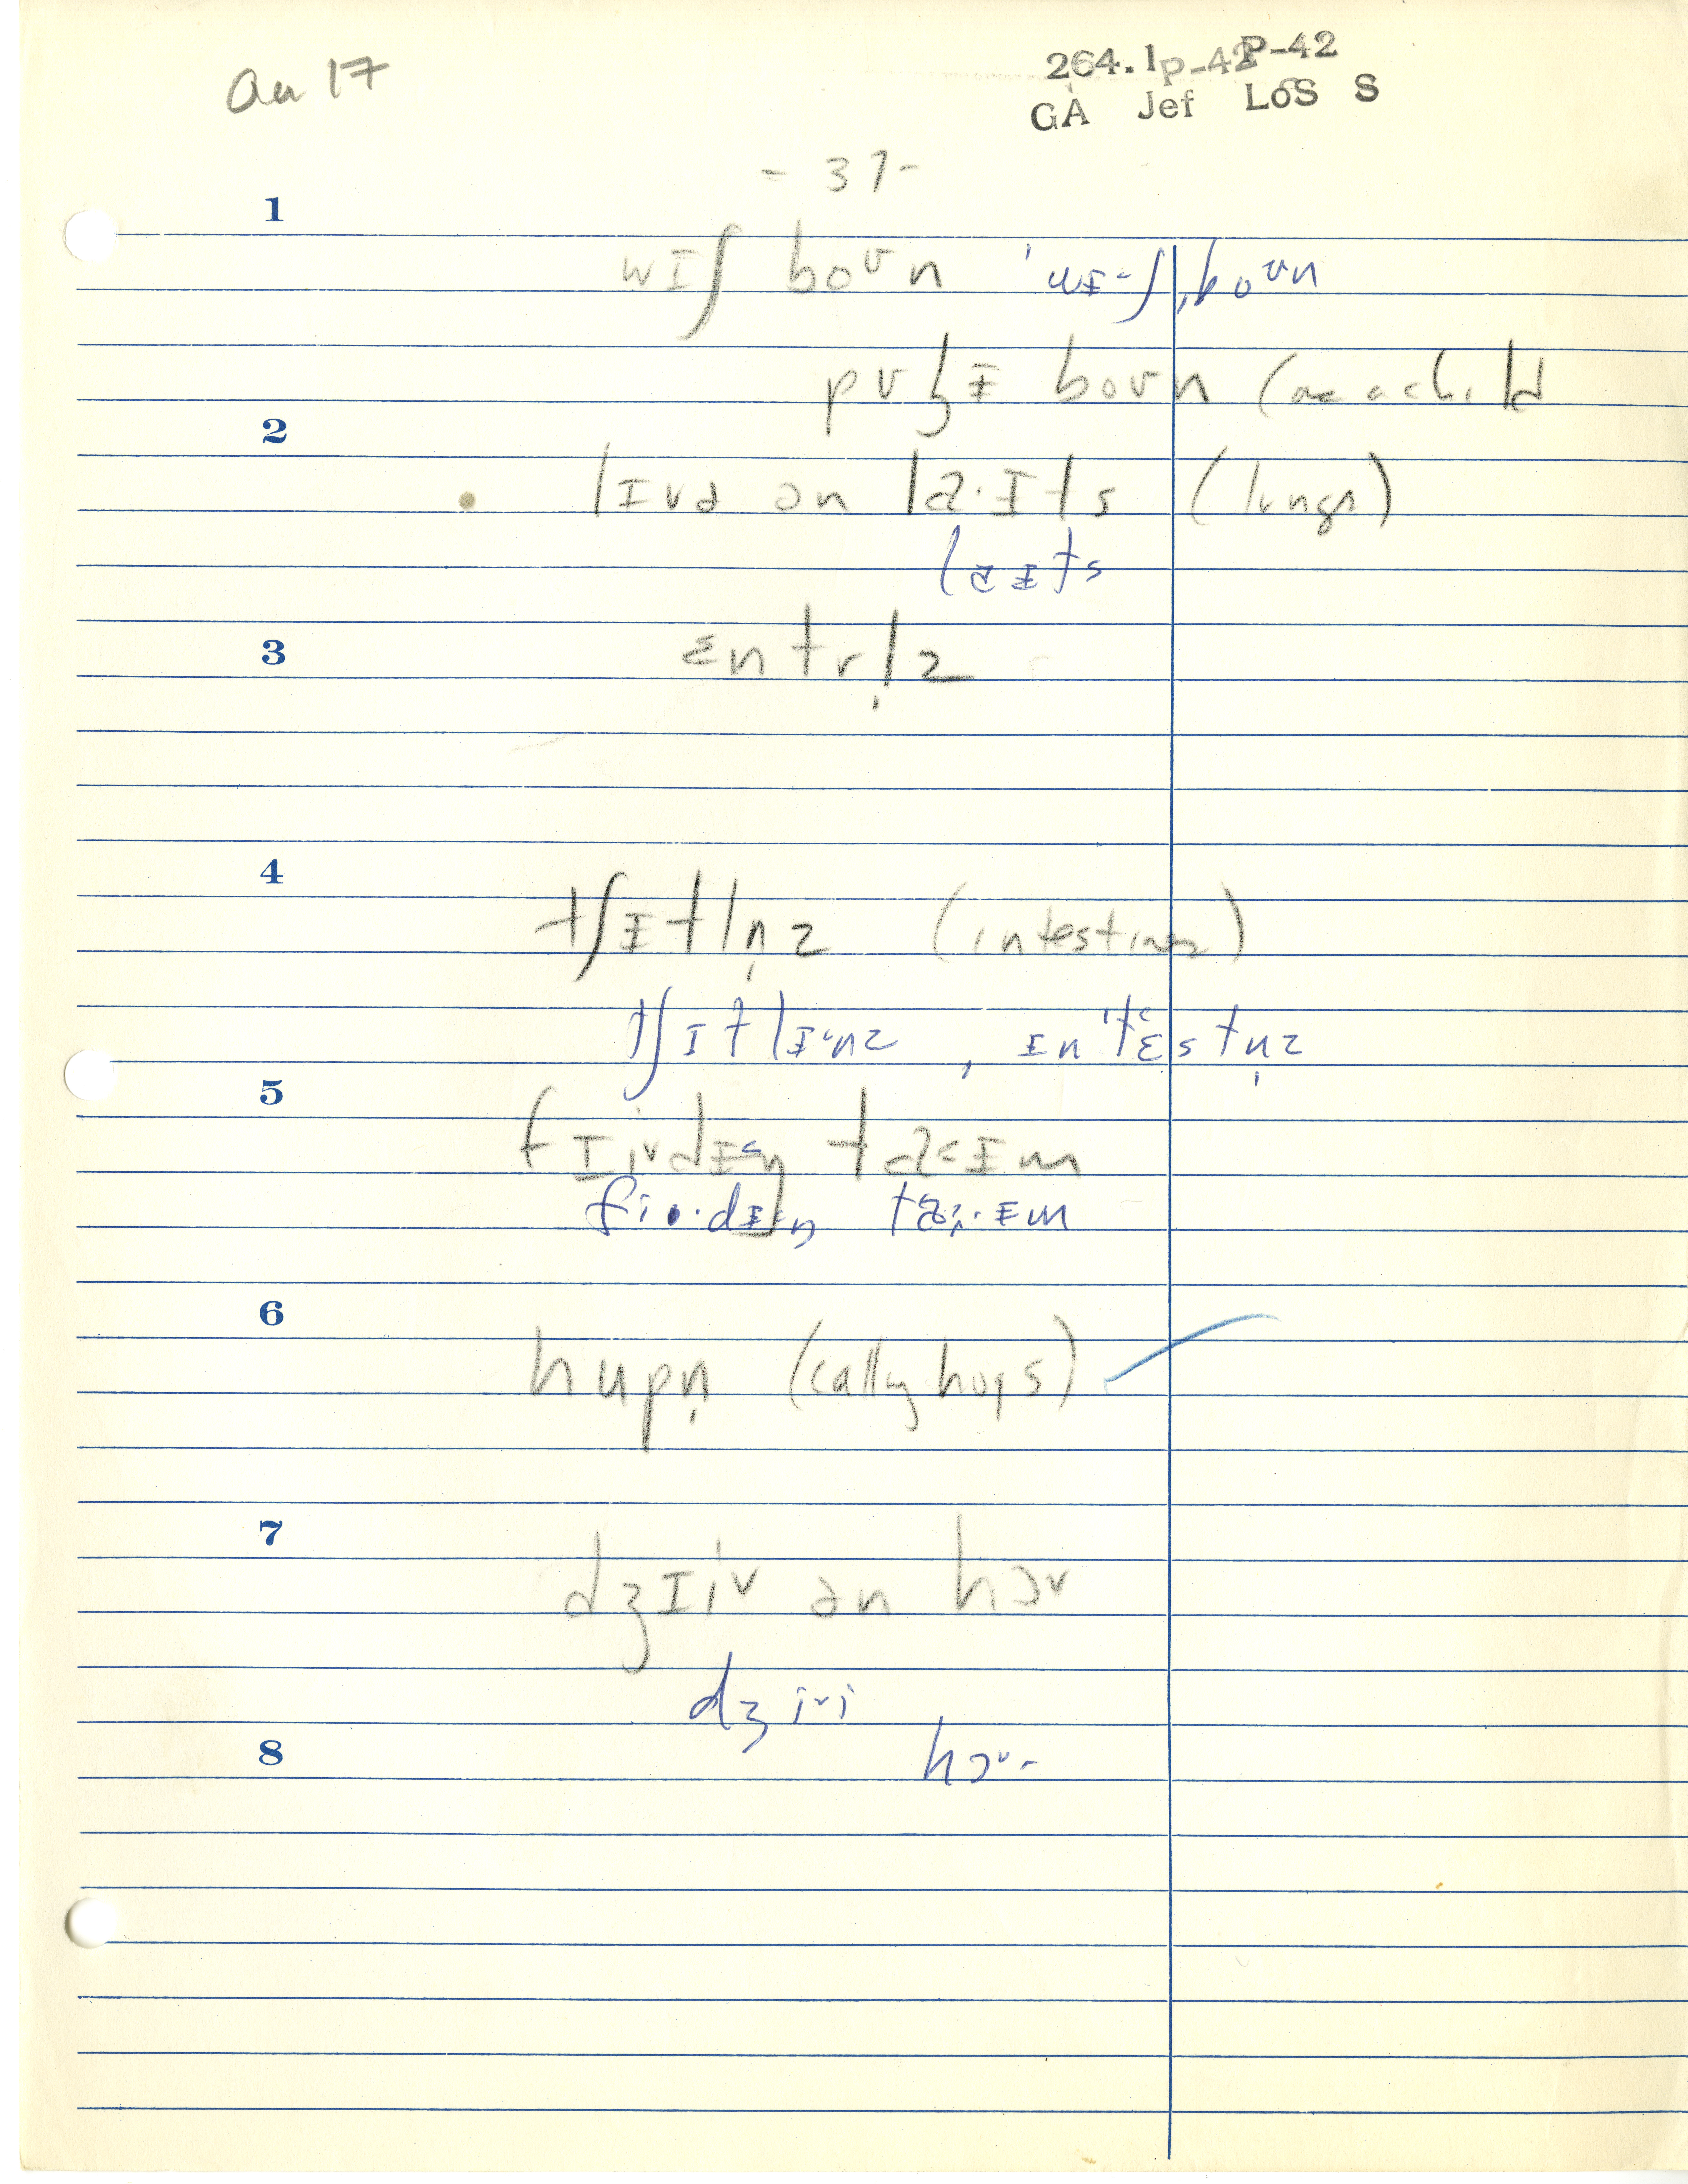 Au 17
264.1p-42 P-42
GA Jef LoS S
- 37 -
1
wɪʃ boʊn ˈwɪ·ʃˌboʊn
pʊ boʊn (as a child
2
lɪvə ən laˑɪts (lungs)
laɪts
3
ɛntrl̩z
4
tʃɪtln̩z (intestines)
tʃɪtlɪˑnz, ɪnˈtɛstn̩z
5
taˑɪm
6
hupn̩ (calling hogs)
7
dʒɪiʊ ən hɔʊ
8
hɔʊ·